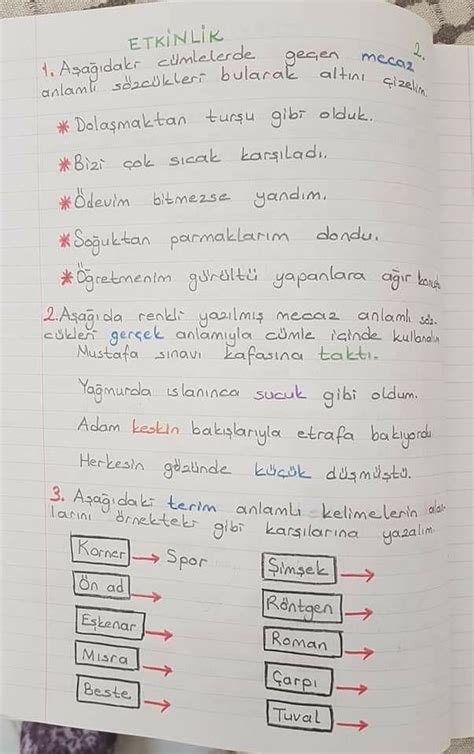 ETKİNLİK
2.
1. Aşağıdaki cümlelerde geçen mecaz
anlamlı sözcükleri bularak altını çizelim.
* Dolaşmaktan turşu gibi olduk.
* Bizi çok sıcak karşıladı.
* Ödevim bitmezse yandım.
* Soğuktan parmaklarım dondu.
* Öğretmenim gürültü yapanlara ağır
2. Aşağıda renkli yazılmış mecaz anlamlı söz-
cükleri gerçek anlamıyla cümle içinde
Mustafa sınavı kafasına taktı.
Yağmurda ıslanınca sucuk gibi oldum.
Adam keskin bakışlarıyla etrafa bakıyordu
Herkesin gözünde küçük düşmüştü.
3. Aşağıdaki terim anlamlı kelimelerin
larını örnekteki gibi karşılarına yazalım.
Korner → Spor
Ön ad →
Eşkenar →
Mısra →
Beste →
Şimşek →
Röntgen →
Roman →
Çarpı →
Tuval →